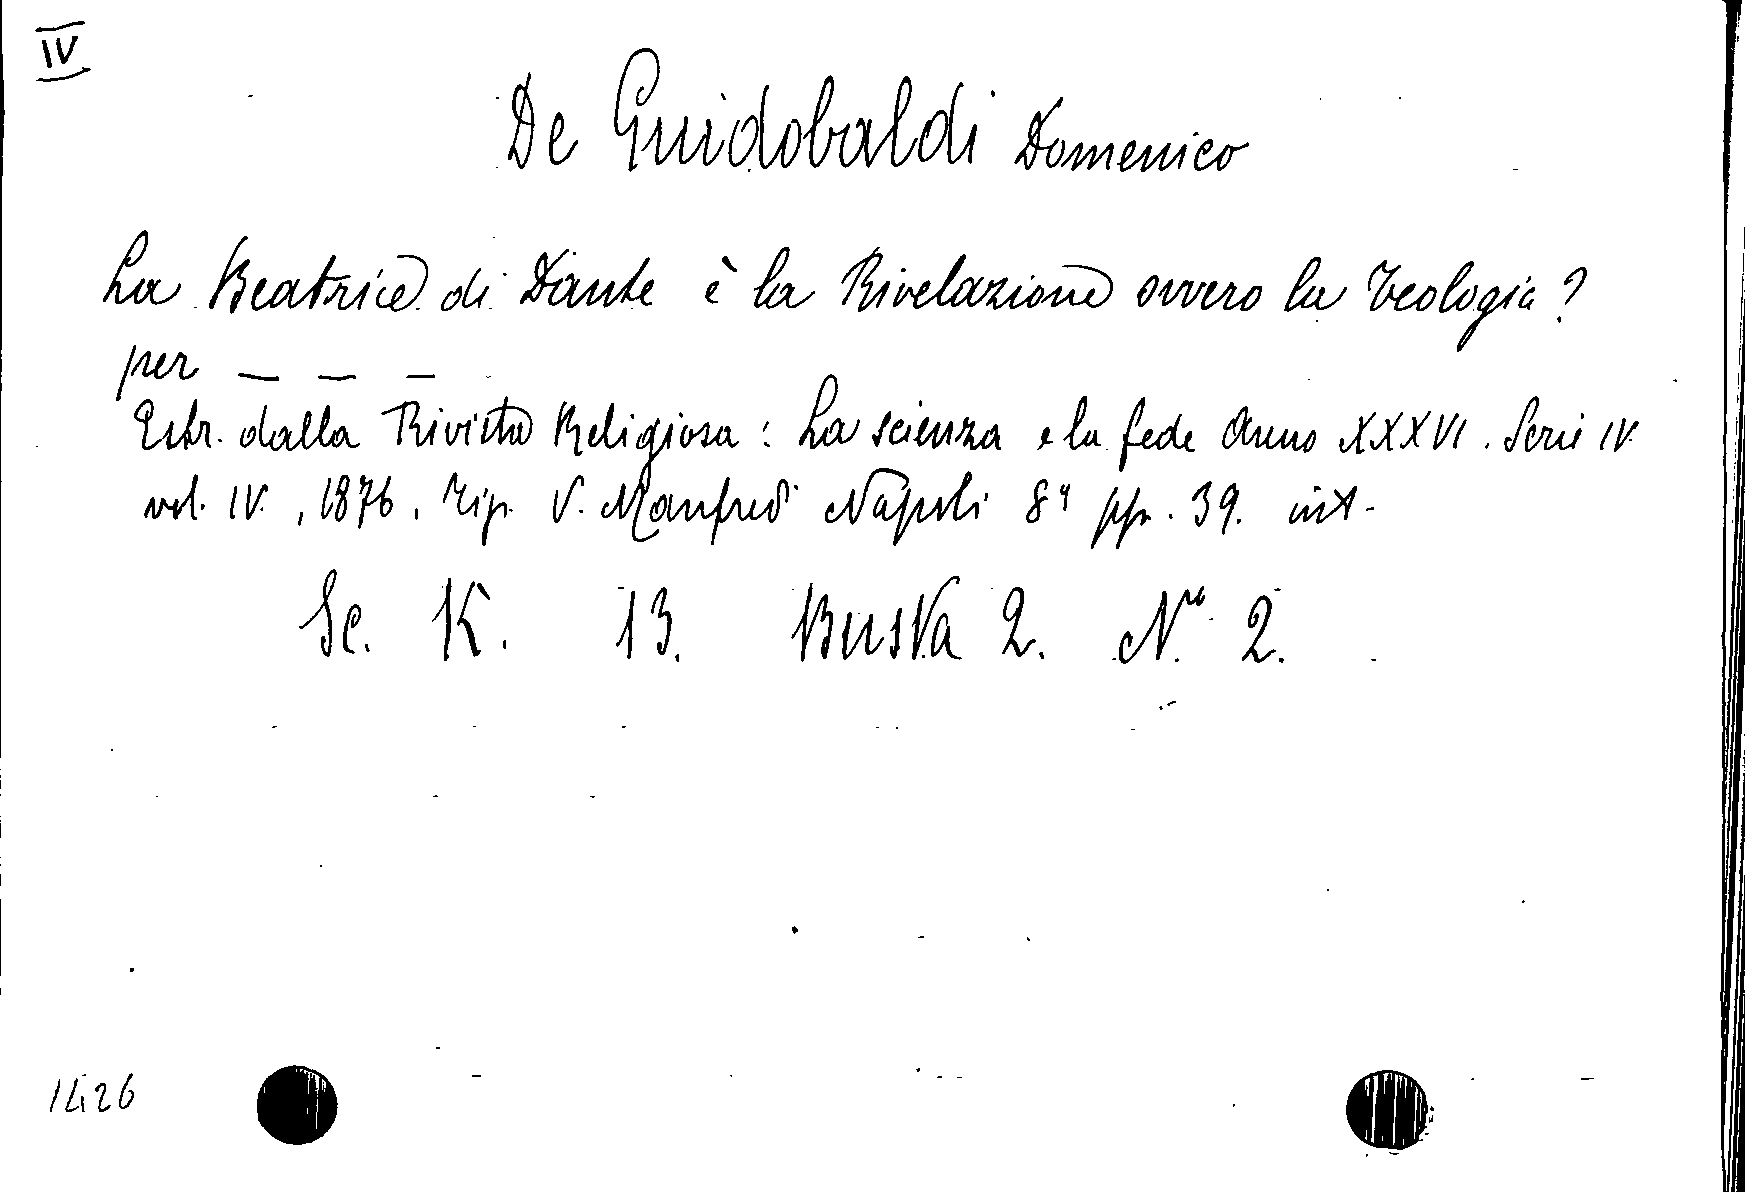 IV
De Guidobaldi Domenico
La Beatrice di Dante è la Rivelazione ovvero la Teologia?
per _ _ _
Estr. dalla Rivista Religiosa: La scienza e la fede Anno XXXVI. Serie IV.
vol. IV., 1876. Tip. V. Manfredi Napoli 8° pp. 39. int.
Sc. K. 13. Busta 2. N.° 2.
1426